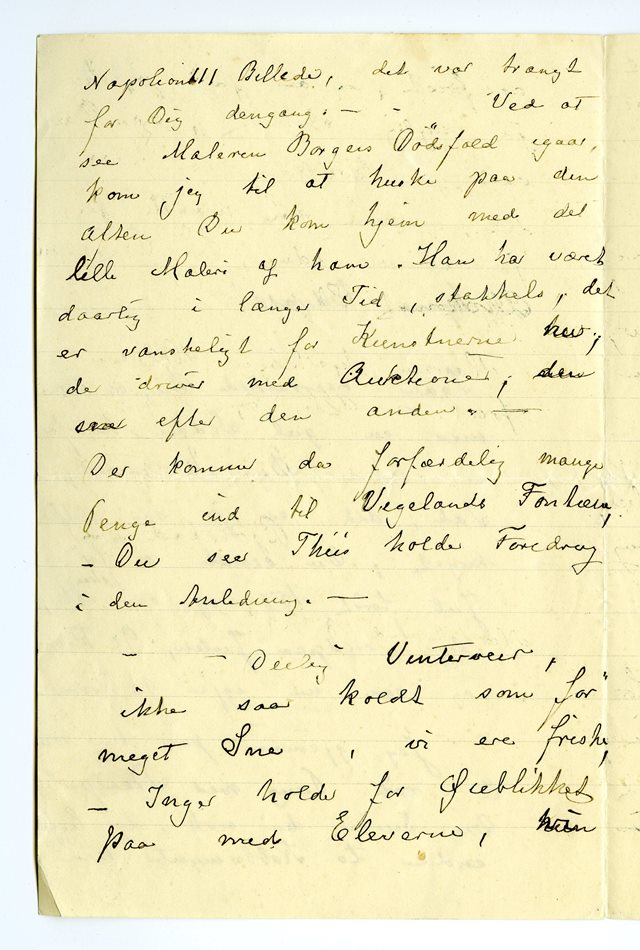 NapolionIII Billede, det var trangt
for Dig dengang. — - Ved at
see Maleren Borgers Dödsfald igaar,
kom jeg til at huske paa den
Aften Du kom hjem med det
lille Maleri af ham. Han har været
daarlig i længer Tid, stakkels, det
er vanskeligt for Kunstnerne nu,
de driver med Auktioner, den
ene efter den anden. —
Der kommer da forfærdelig mange
Penge ind til Vegelands Fontæne,
- Du seer Thiis holder Foredrag
i den Anledning. —
- - Deilig Vinterveir,
ikke saa koldt som för
meget Sne, vi ere friske,
- Inger holder for Øieblikket
paa med Eleverne, hun